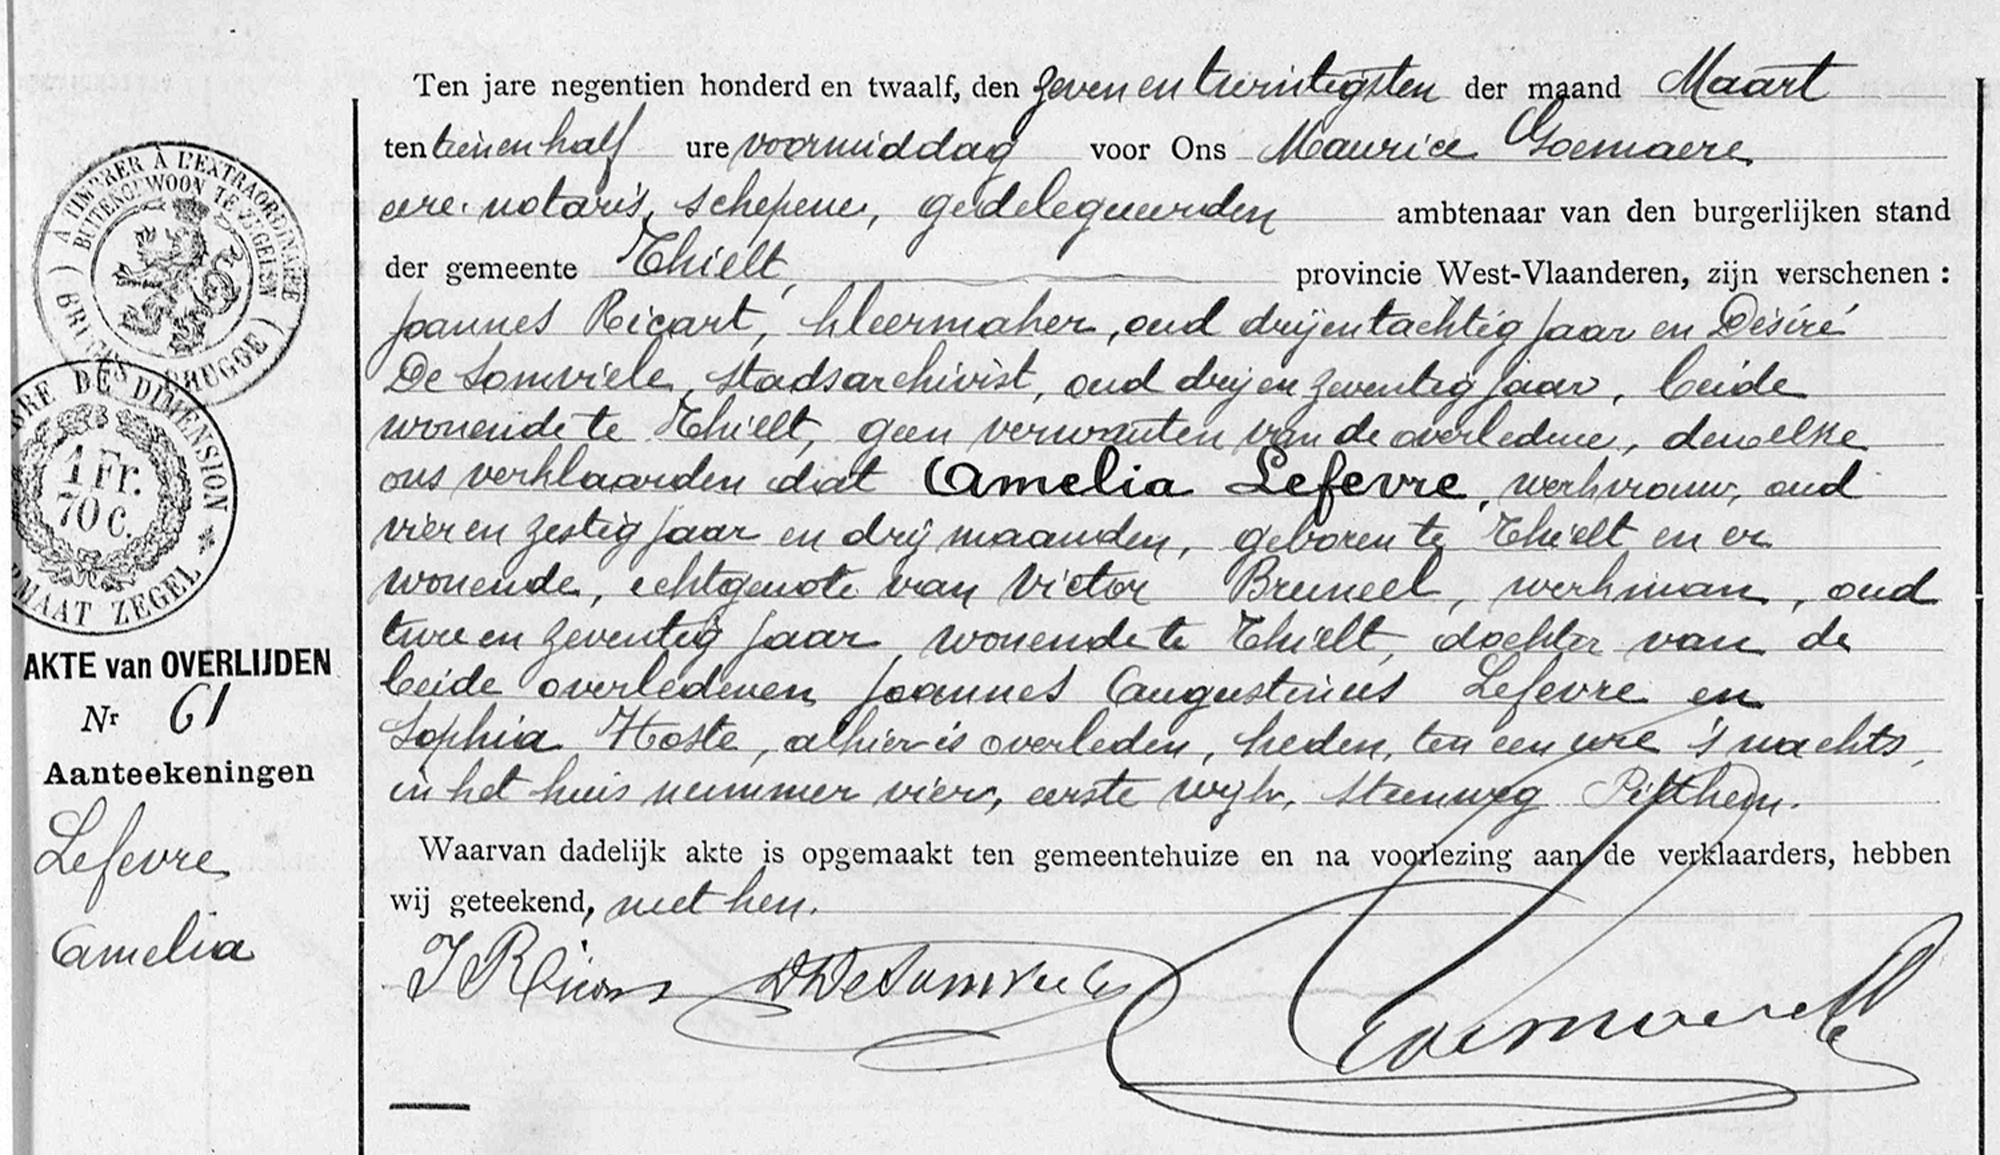 Ten jare negentien honderd en twaalf, den zeven en twintigsten der maand Maart
ten tien en half ure voormiddag voor Ons Maurice Goemaere
eere-notaris, schepene, gedelegueerden ambtenaar van den burgerlijken stand
der gemeente Thielt, provincie West-Vlaanderen, zijn verschenen :
Joannes Ricart, kleermaker, oud drijentachtig jaar en Désiré
De Somviele, stadsarchivist, oud drij en zeventig jaar, beide
wonende te Thielt, geen verwanten van de overledene, dewelke
ons verklaarden dat Amelia Lefevre, werkvrouw, oud
vier en zestig jaar en drij maanden, geboren te Thielt en er
wonende, echtgenote van Victor Bruneel, werkman, oud
twee en zeventig jaar wonende te Thielt, dochter van de
beide overledenen Joannes Augustinus Lefevre en
Sophia Hoste, alhier is overleden, heden, ten een ure 's nachts,
in het huis nummer vier, eerste wijk, steenweg Pitthem.
Waarvan dadelijk akte is opgemaakt ten gemeentehuize en na voorlezing aan de verklaarders, hebben
wij geteekend, met hen.
J Ricart DDeSomviele Goemaere
À TIMBRER À L'EXTRAORDINAIRE
BUITENGEWOON TE ZEGELEN
( BRUGES BRUGGE )
BRE DE DIMENSION
1 Fr.
70 C.
MAAT ZEGEL
AKTE van OVERLIJDEN
Nr 61
Aanteekeningen
Lefevre
Amelia